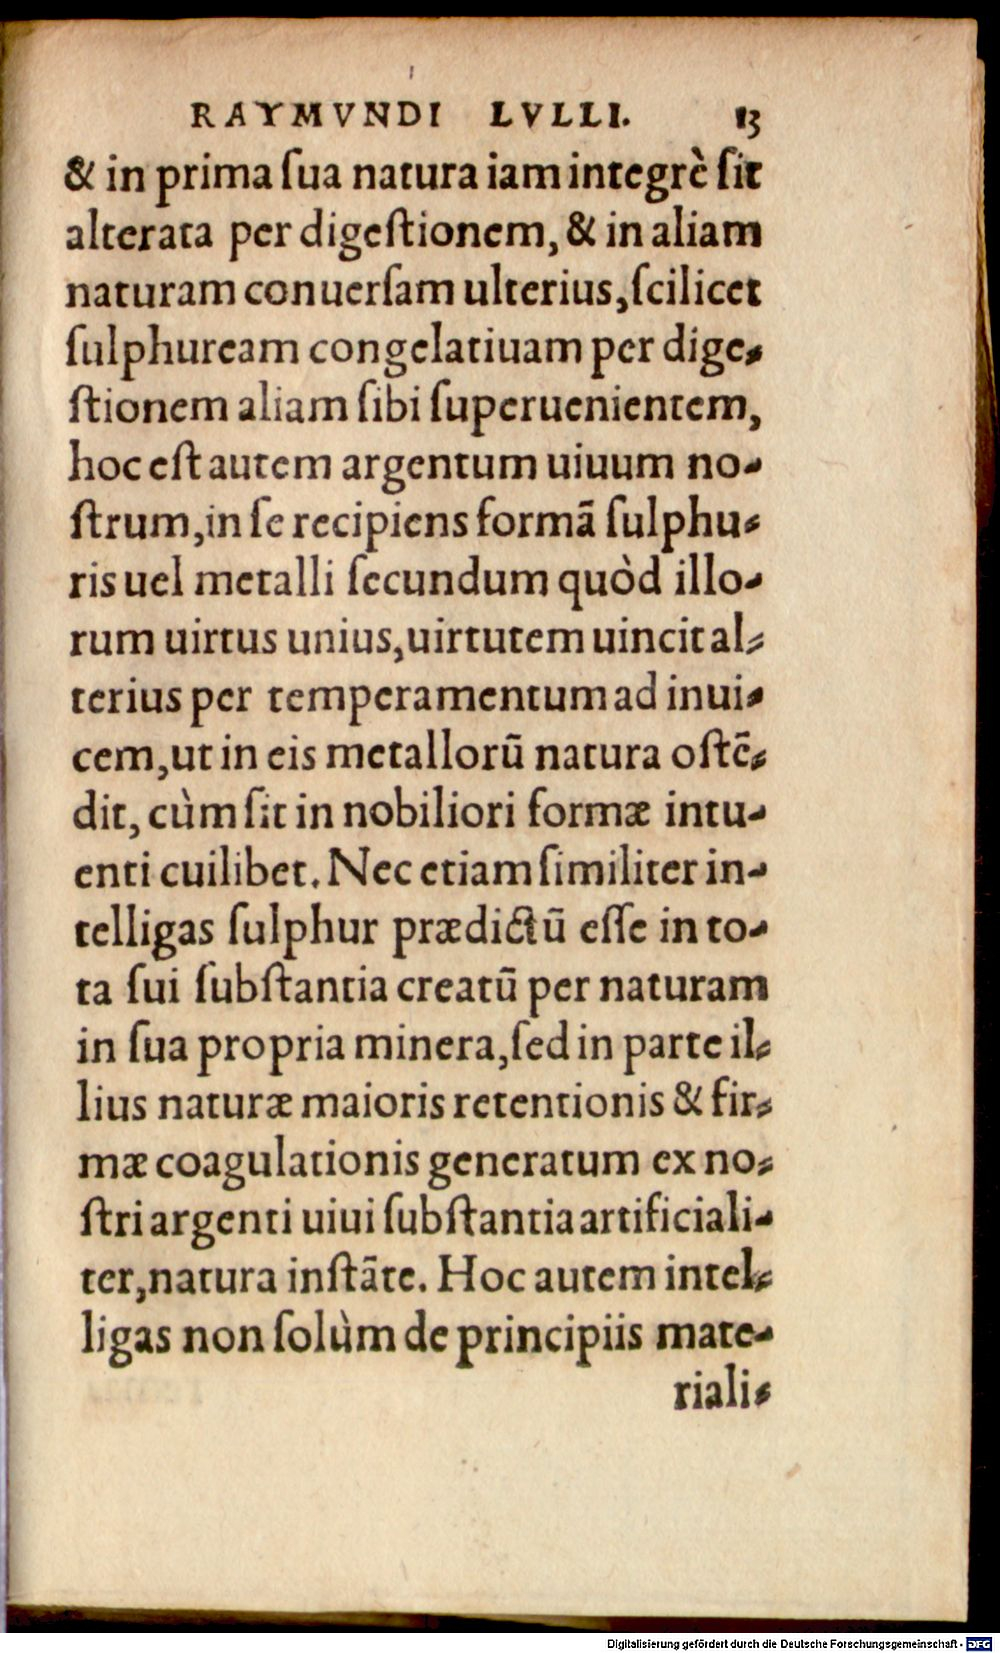 RAYMVNDI LVLLI. 13
& in prima ſua natura iam integrè ſit
alterata per digeſtionem, & in aliam
naturam conuerſam ulterius, ſcilicet
ſulphuream congelatiuam per dige-
ſtionem aliam ſibi ſuperuenientem,
hoc eſt autem argentum uiuum no-
ſtrum, in ſe recipiens formã ſulphu-
ris uel metalli ſecundum quòd illo-
rum uirtus unius, uirtutem uincit al-
terius per temperamentum ad inui-
cem, ut in eis metallorũ natura oſtẽ-
dit, cùm ſit in nobiliori formæ intu-
enti cuilibet. Nec etiam ſimiliter in-
telligas ſulphur prædictũ eſſe in to-
ta ſui ſubſtantia creatũ per naturam
in ſua propria minera, ſed in parte il-
lius naturæ maioris retentionis & fir-
mæ coagulationis generatum ex no-
ſtri argenti uiui ſubſtantia artificiali-
ter, natura inſtãte. Hoc autem intel-
ligas non ſolùm de principiis mate-
riali-
Digitalisierung gefördert durch die Deutsche Forschungsgemeinschaft - DFG